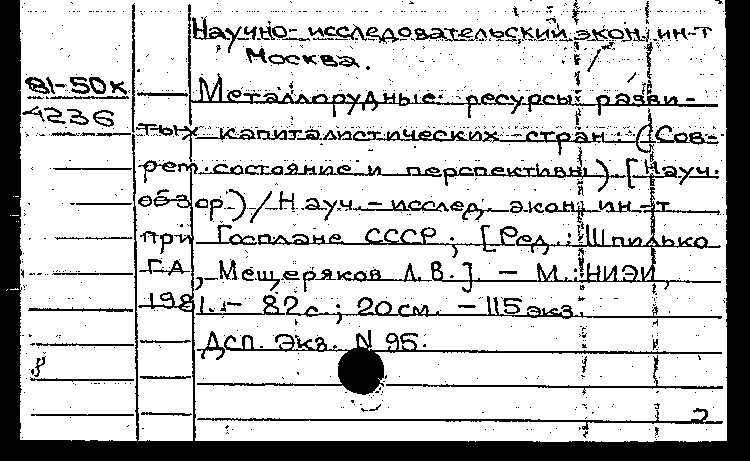 Научно-исследовательский экон. ин-т
Москва.
81-50к
4236
Металлорудные ресурсы разви-
тых капиталистических стран: (Совр-
рем. состояние и перспективы). [Науч.
обзор) / Науч.-исслед. экон. ин-т
при Госплане СССР; [Ред.: Шпилько
Г.А., Мещеряков Л.В.]. - М.: НИЭИ,
1981. - 82 с.; 20 см. - 115 экз.
Дсп. Экз. N 95.
2